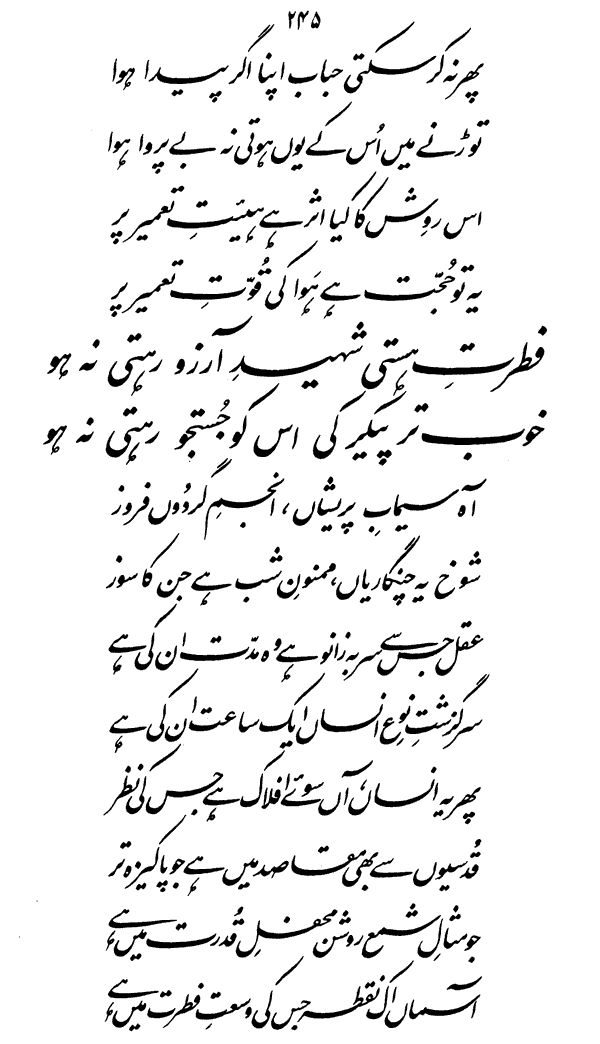 ۲۴۵
پھر نہ کر سکتی حباب اپنا اگر پیدا ہوا
توڑنے میں اُس کے یوں ہوتی نہ بے پروا ہوا
اس روِش کا کیا اثر ہے ہیئتِ تعمیر پر
یہ تو حُجّت ہے ہَوا کی قُوّتِ تعمیر پر
فطرتِ ہستی شہیدِ آرزو رہتی نہ ہو
خوب تر پیکر کی اس کو جُستجو رہتی نہ ہو
آہ سیمابِ پریشاں، انجمِ گردُوں فروز
شوخ یہ چنگاریاں، ممنونِ شب ہے جن کا سوز
عقل جس سے سر بہ زانو ہے وہ مدّت ان کی ہے
سرگزشتِ نوعِ انساں ایک ساعت ان کی ہے
پھر یہ انساں، آں سوئے افلاک ہے جس کی نظر
قُدسیوں سے بھی مقاصد میں ہے جو پاکیزہ تر
جو مثالِ شمع روشن محفلِ قُدرت میں ہے
آسماں اک نقطہ جس کی وسعتِ فطرت میں ہے